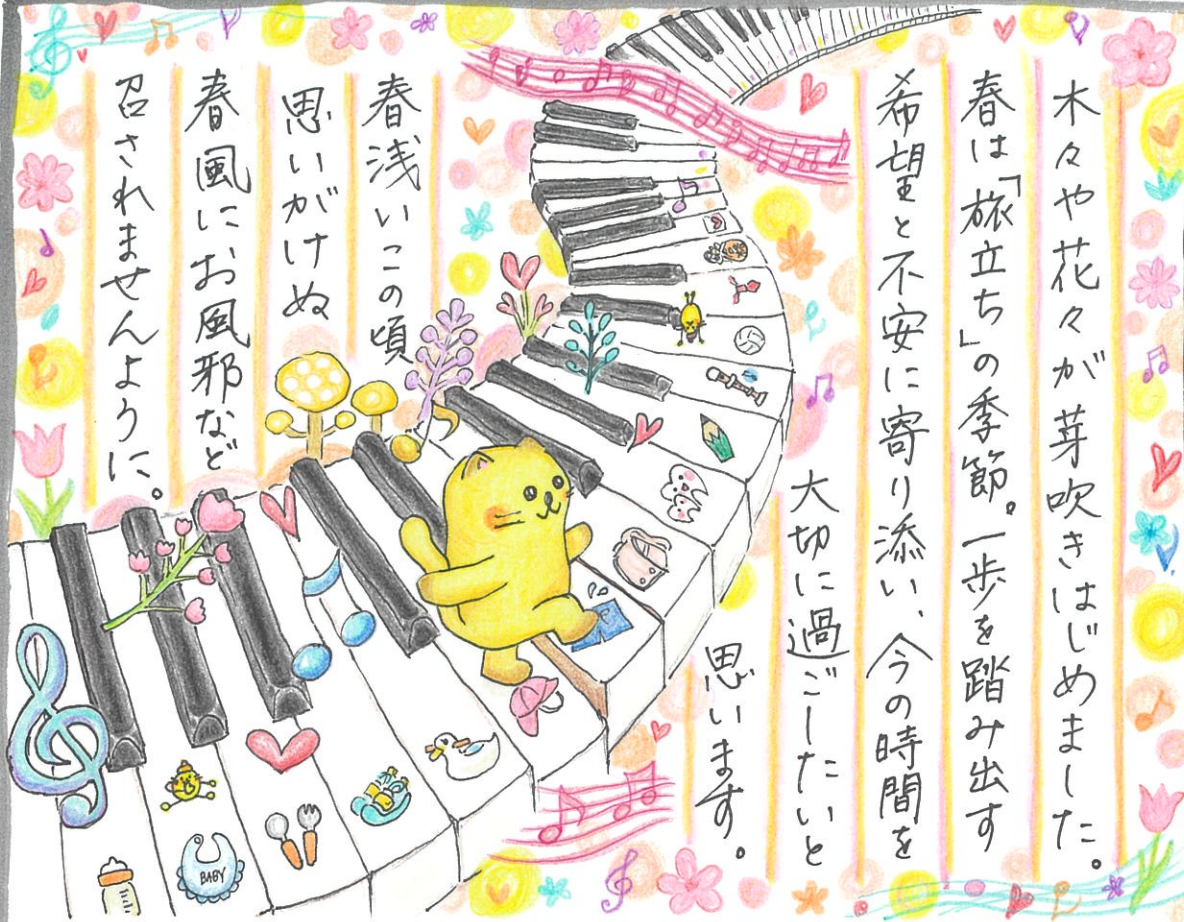 木々や花々が芽吹きはじめました。
春は「旅立ち」の季節。一歩を踏み出す
希望と不安に寄り添い、今の時間を
大切に過ごしたいと
思います。
春浅いこの頃
思いがけぬ
春風にお風邪など
召されませんように。
BABY